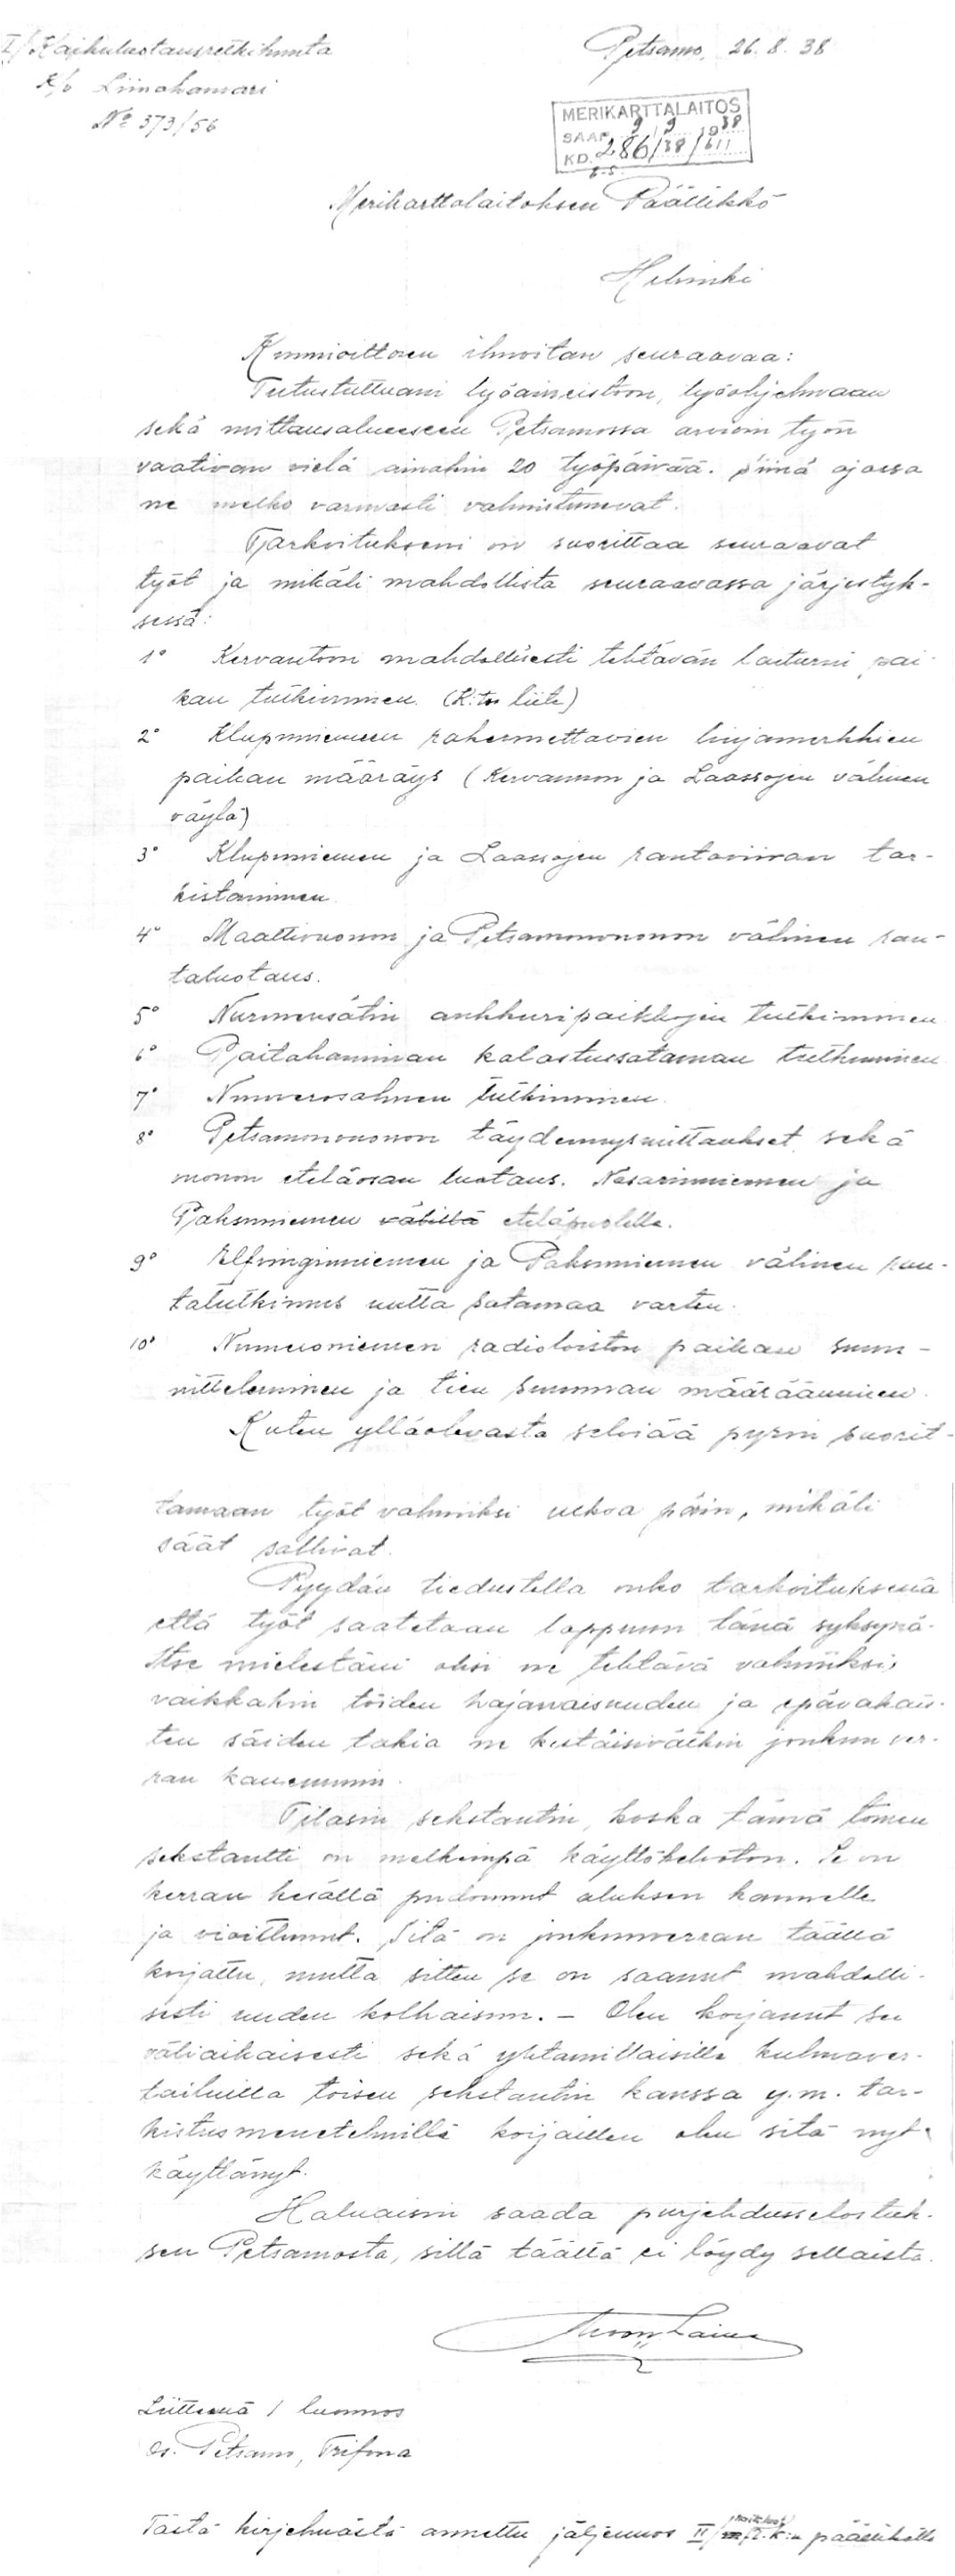 I/Kaikuluotausretkikunta
K/o Liinahamari
Nº 373/56
Petsamo, 26.8.38
MERIKARTTALAITOS
SAAP. 2/9 1938
KD. 286/38/611
Merikarttalaitoksen Päällikkö
Helsinki
Kunnioittaen ilmoitan seuraavaa:
Tutustuttuani työaineistoon, työohjelmaan
sekä mittausalueeseen Petsamossa arvioin työn
vaativan vielä ainakin 20 työpäivää. Siinä ajassa
ne melko varmasti valmistunevat.
Tarkoitukseni on suorittaa seuraavat
työt ja mikäli mahdollista seuraavassa järjestyk-
sessä:
1º Kervantoon mahdollisesti tehtävän laiturin pai-
kan tutkiminen. (K:tso liite)
2º Klupuniemeen rakennettavien linjamerkkien
paikan määräys (Kervannon ja Laassojen välinen
väylä)
3º Klupuniemen ja Laassojen rantaviivan tar-
kistaminen
4º Maattivuonon ja Petsamonvuonon välinen ran-
taluotaus.
5º Nurmensätin ankkuripaikkojen tutkiminen
6º Paitahaminan kalastussataman tutkiminen
7º Numerosalmen tutkiminen.
8º Petsamonvuonon täydennysmittaukset sekä
vuonon eteläosan luotaus. Nasarinniemen ja
Paksuniemen välillä eteläpuolella.
9º Elfvinginniemen ja Paksuniemen välinen ran-
tatutkimus uutta satamaa varten.
10º Numeroniemen radioloiston paikan suun-
nitteleminen ja tien suunnan määrääminen.
Kuten ylläolevasta selviää pyrin suorit-
tamaan työt valmiiksi ulkoa päin, mikäli
säät sallivat.
Pyydän tiedustella onko tarkoituksena
että työt saatetaan loppuun tänä syksynä.
Itse mielestäni olisi ne tehtävä valmiiksi,
vaikkakin töiden hajanaisuuden ja epävakais-
ten säiden takia ne kestäisivätkin jonkun ver-
ran kauemmin.
Tilasin sekstantin, koska tämä toinen
sekstantti on melkeinpä käyttökelvoton. Se on
kerran kesällä pudonnut aluksen kannelle
ja vioittunut. Sitä on jonkunverran täällä
korjattu, mutta sitten se on saanut mahdolli-
sesti uuden kolhaisun. – Olen korjannut sen
väliaikaisesti sekä yhtämittaisilla kulmaver-
tailuilla toisen sekstantin kanssa y.m. tar-
kistusmenetelmillä korjaillen olen sitä nyt
käyttänyt.
Haluaisin saada purjehdusselostuk-
sen Petsamosta, sillä täältä ei löydy sellaista.
Laine
Liitteenä 1 luonnos
Os. Petsamo, Trifona
Tästä kirjelmästä annettu jäljennös II/ r.k:n päällikölle